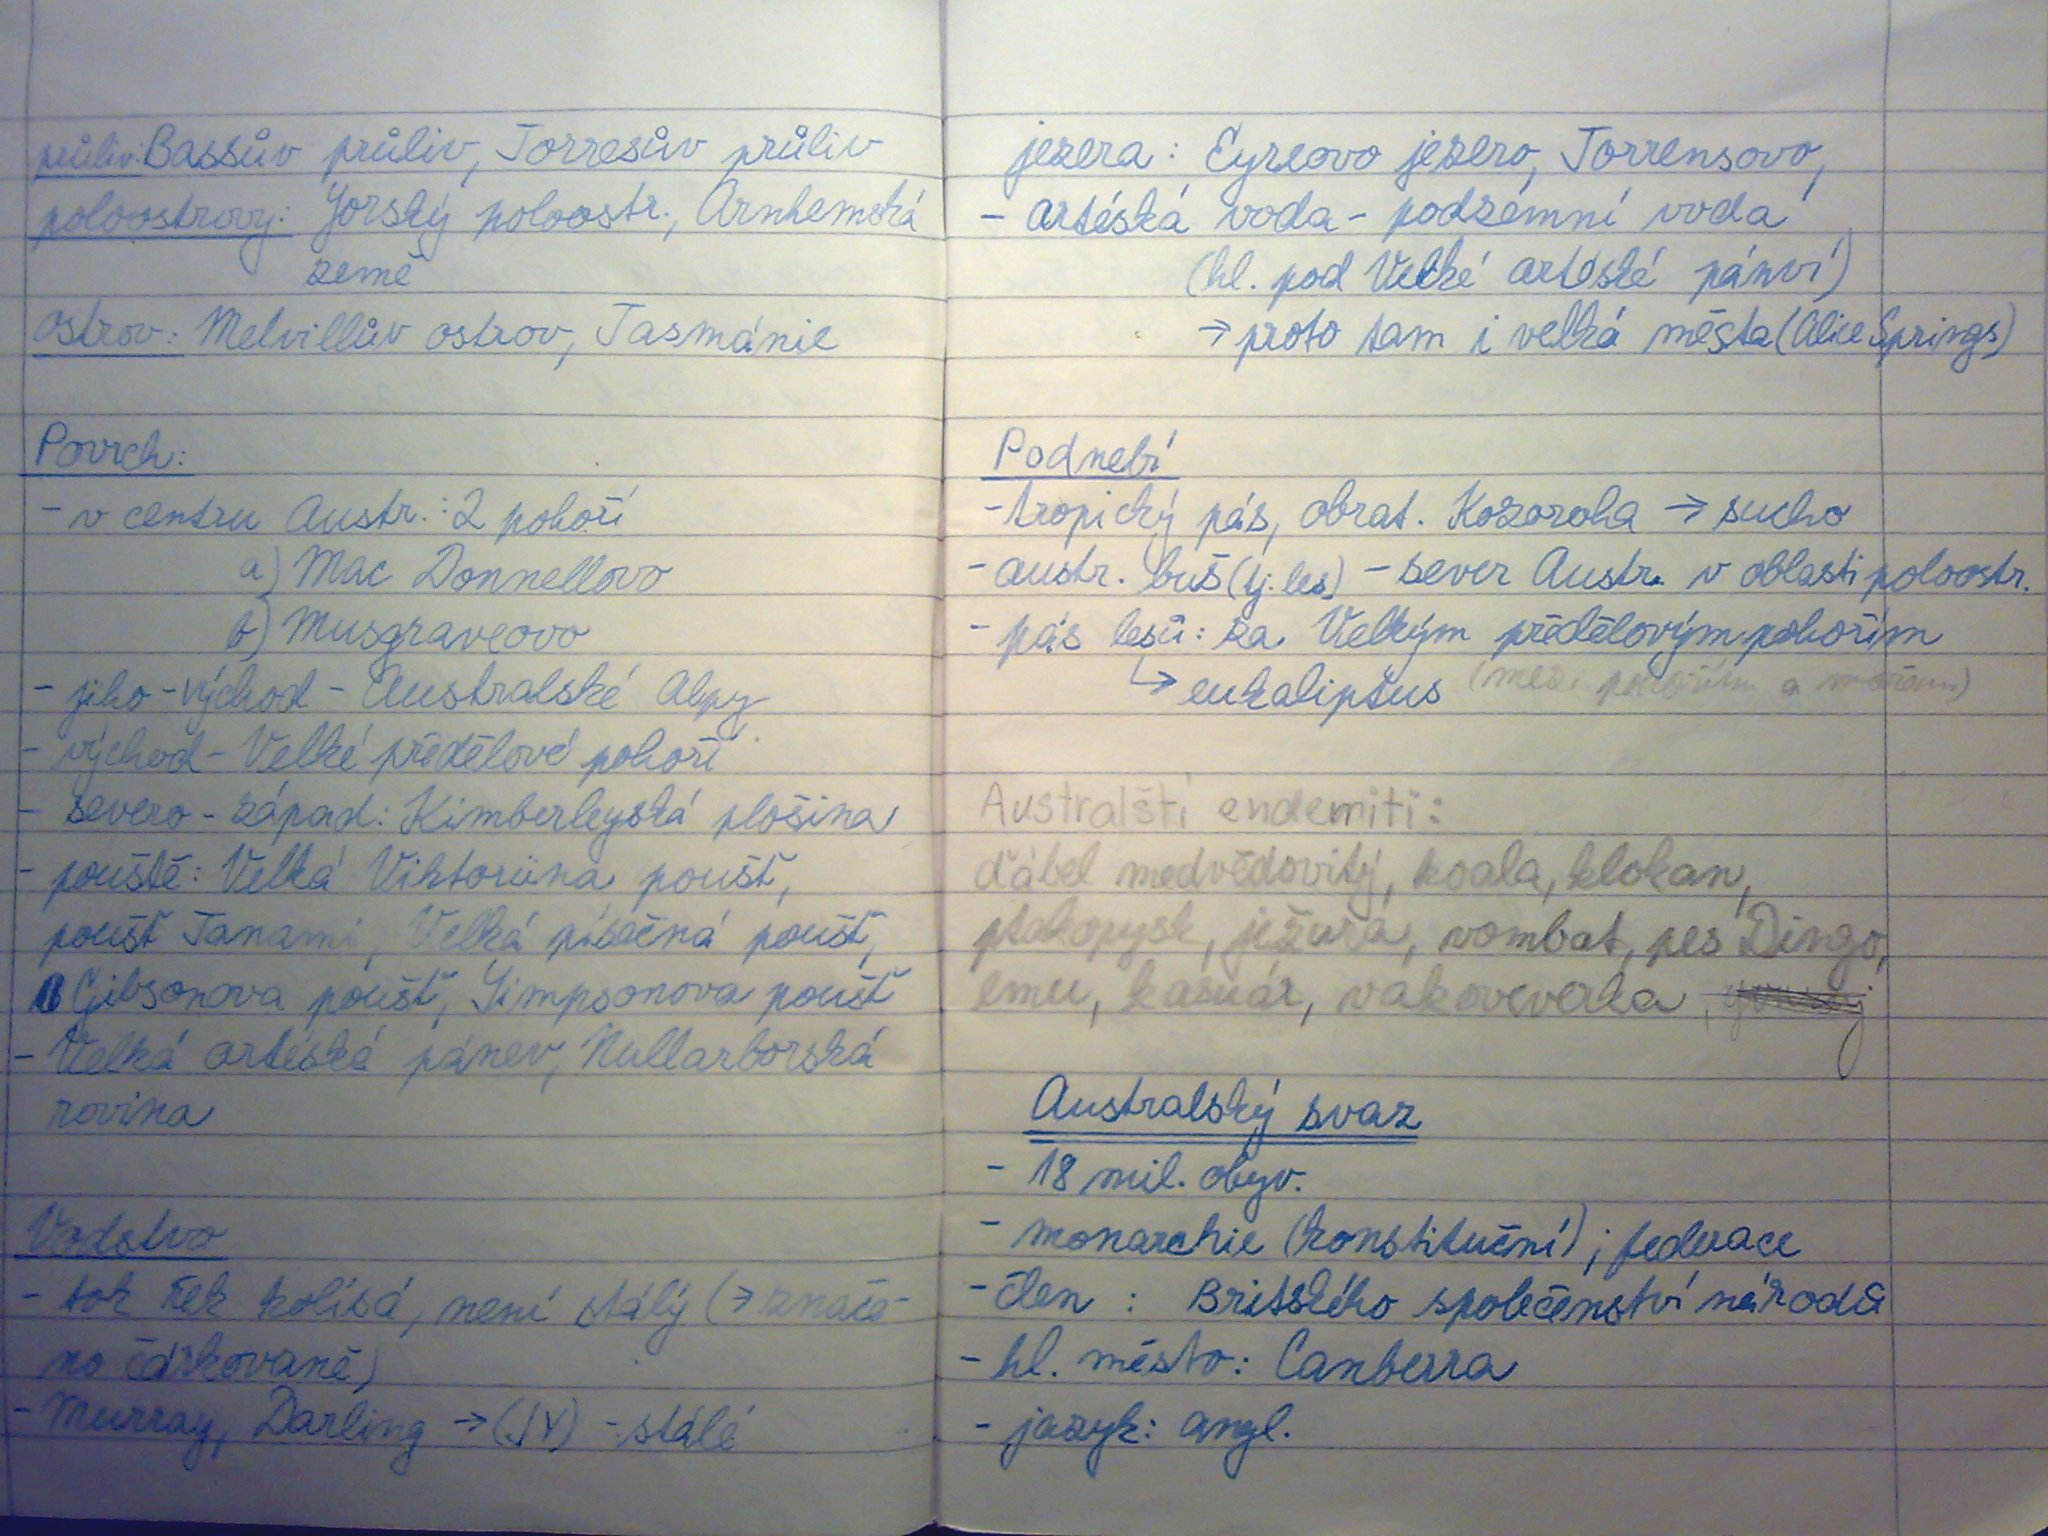 průliv: Bassův průliv, Torresův průliv
poloostrovy: Yorský poloostr., Arnhemská
země
ostrov: Melvillův ostrov, Tasmánie
Povrch:
- v centru Austr.: 2 pohoří
a) Mac Donnellovo
b) Musgraveovo
- jiho-východ - Australské Alpy
- východ - Velké předělové pohoří
- severo-západ: Kimberleyská plošina
- pouště: Velká Viktoriina poušť,
poušť Tanami, Velká písečná poušť,
Gibsonova poušť, Simpsonova poušť
- Velká artéská pánev, Nullarborská
rovina
Vodstvo
- tok řek kolísá, není stálý (→ znače-
no čárkovaně)
- Murray, Darling → (JV) - stálé
jezera: Eyreovo jezero, Torrensovo,
- artéská voda - podzemní voda
(hl. pod Velké artéské pánví)
→ proto tam i velká města (Alice Springs)
Podnebí
- tropický pás, obrat. Kozoroha → sucho
- austr. buš (tj. les) - sever Austr. v oblasti poloostr.
- pás lesů: za Velkým předělovým pohořím
↳ eukaliptus (mezi pohořím a mořem)
Australští endemiti:
ďábel medvědovitý, koala, klokan,
ptakopysk, ježura, vombat, pes Dingo,
emu, kasuár, vakoveverka,
Australský svaz
- 18 mil. obyv.
- monarchie (konstituční); federace
- člen: Britského společenství národů
- hl. město: Canberra
- jazyk: angl.